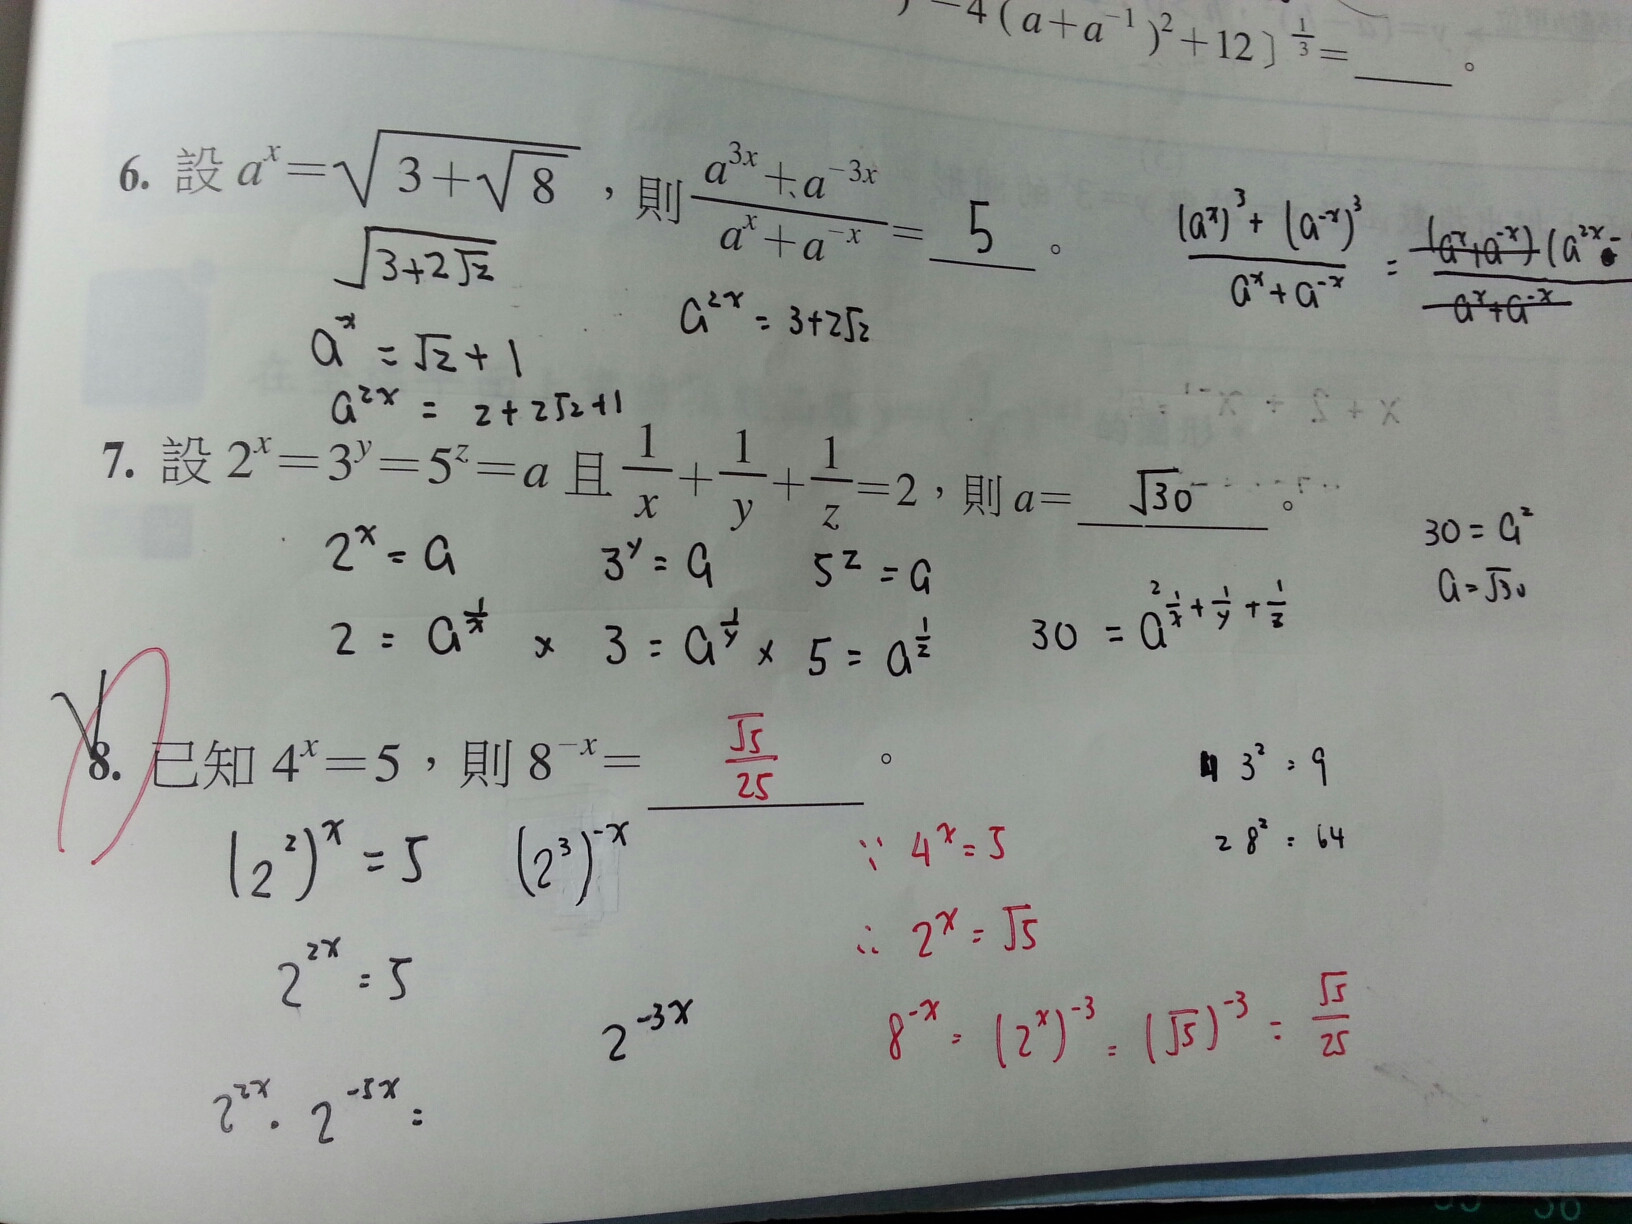 −4(a+a⁻¹)²+12〕^{1/3}=____。
6. 設 aˣ=√(3+√8)，則 (a³ˣ+a⁻³ˣ)/(aˣ+a⁻ˣ)= 5 。
√(3+2√2)
aˣ = √2+1
a²ˣ = 2+2√2+1
a²ˣ = 3+2√2
((aˣ)³+(a⁻ˣ)³)/(aˣ+a⁻ˣ) = (aˣ+a⁻ˣ)(a²ˣ-/(aˣ+a⁻ˣ)
7. 設 2ˣ=3ʸ=5ᶻ=a 且 1/x+1/y+1/z=2，則 a= √30 。
2ˣ = a 3ʸ = a 5ᶻ = a
2 = a^{1/x} × 3 = a^{1/y} × 5 = a^{1/z} 30 = a^{1/x+1/y+1/z} 2
30 = a²
a = √30
8. 已知 4ˣ=5，則 8⁻ˣ= √5/25 。
(2²)ˣ = 5 (2³)⁻ˣ
2²ˣ = 5
2⁻³ˣ
2²ˣ · 2⁻⁵ˣ =
∵ 4ˣ = 5
∴ 2ˣ = √5
8⁻ˣ = (2ˣ)⁻³ = (√5)⁻³ = √5/25
3² = 9
2 8² = 64